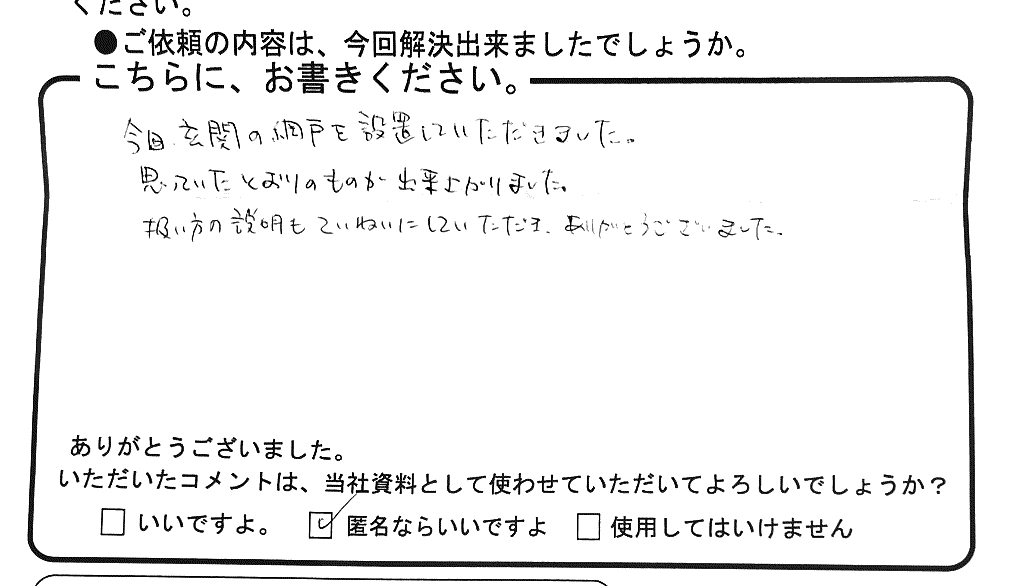 ください。
●ご依頼の内容は、今回解決出来ましたでしょうか。
こちらに、お書きください。
今回、玄関の網戸を設置していただきました。
思っていたとおりのものが出来上がりました。
扱い方の説明もていねいにしていただき、ありがとうございました。
ありがとうございました。
いただいたコメントは、当社資料として使わせていただいてよろしいでしょうか？
□ いいですよ。 ☑ 匿名ならいいですよ □ 使用してはいけません